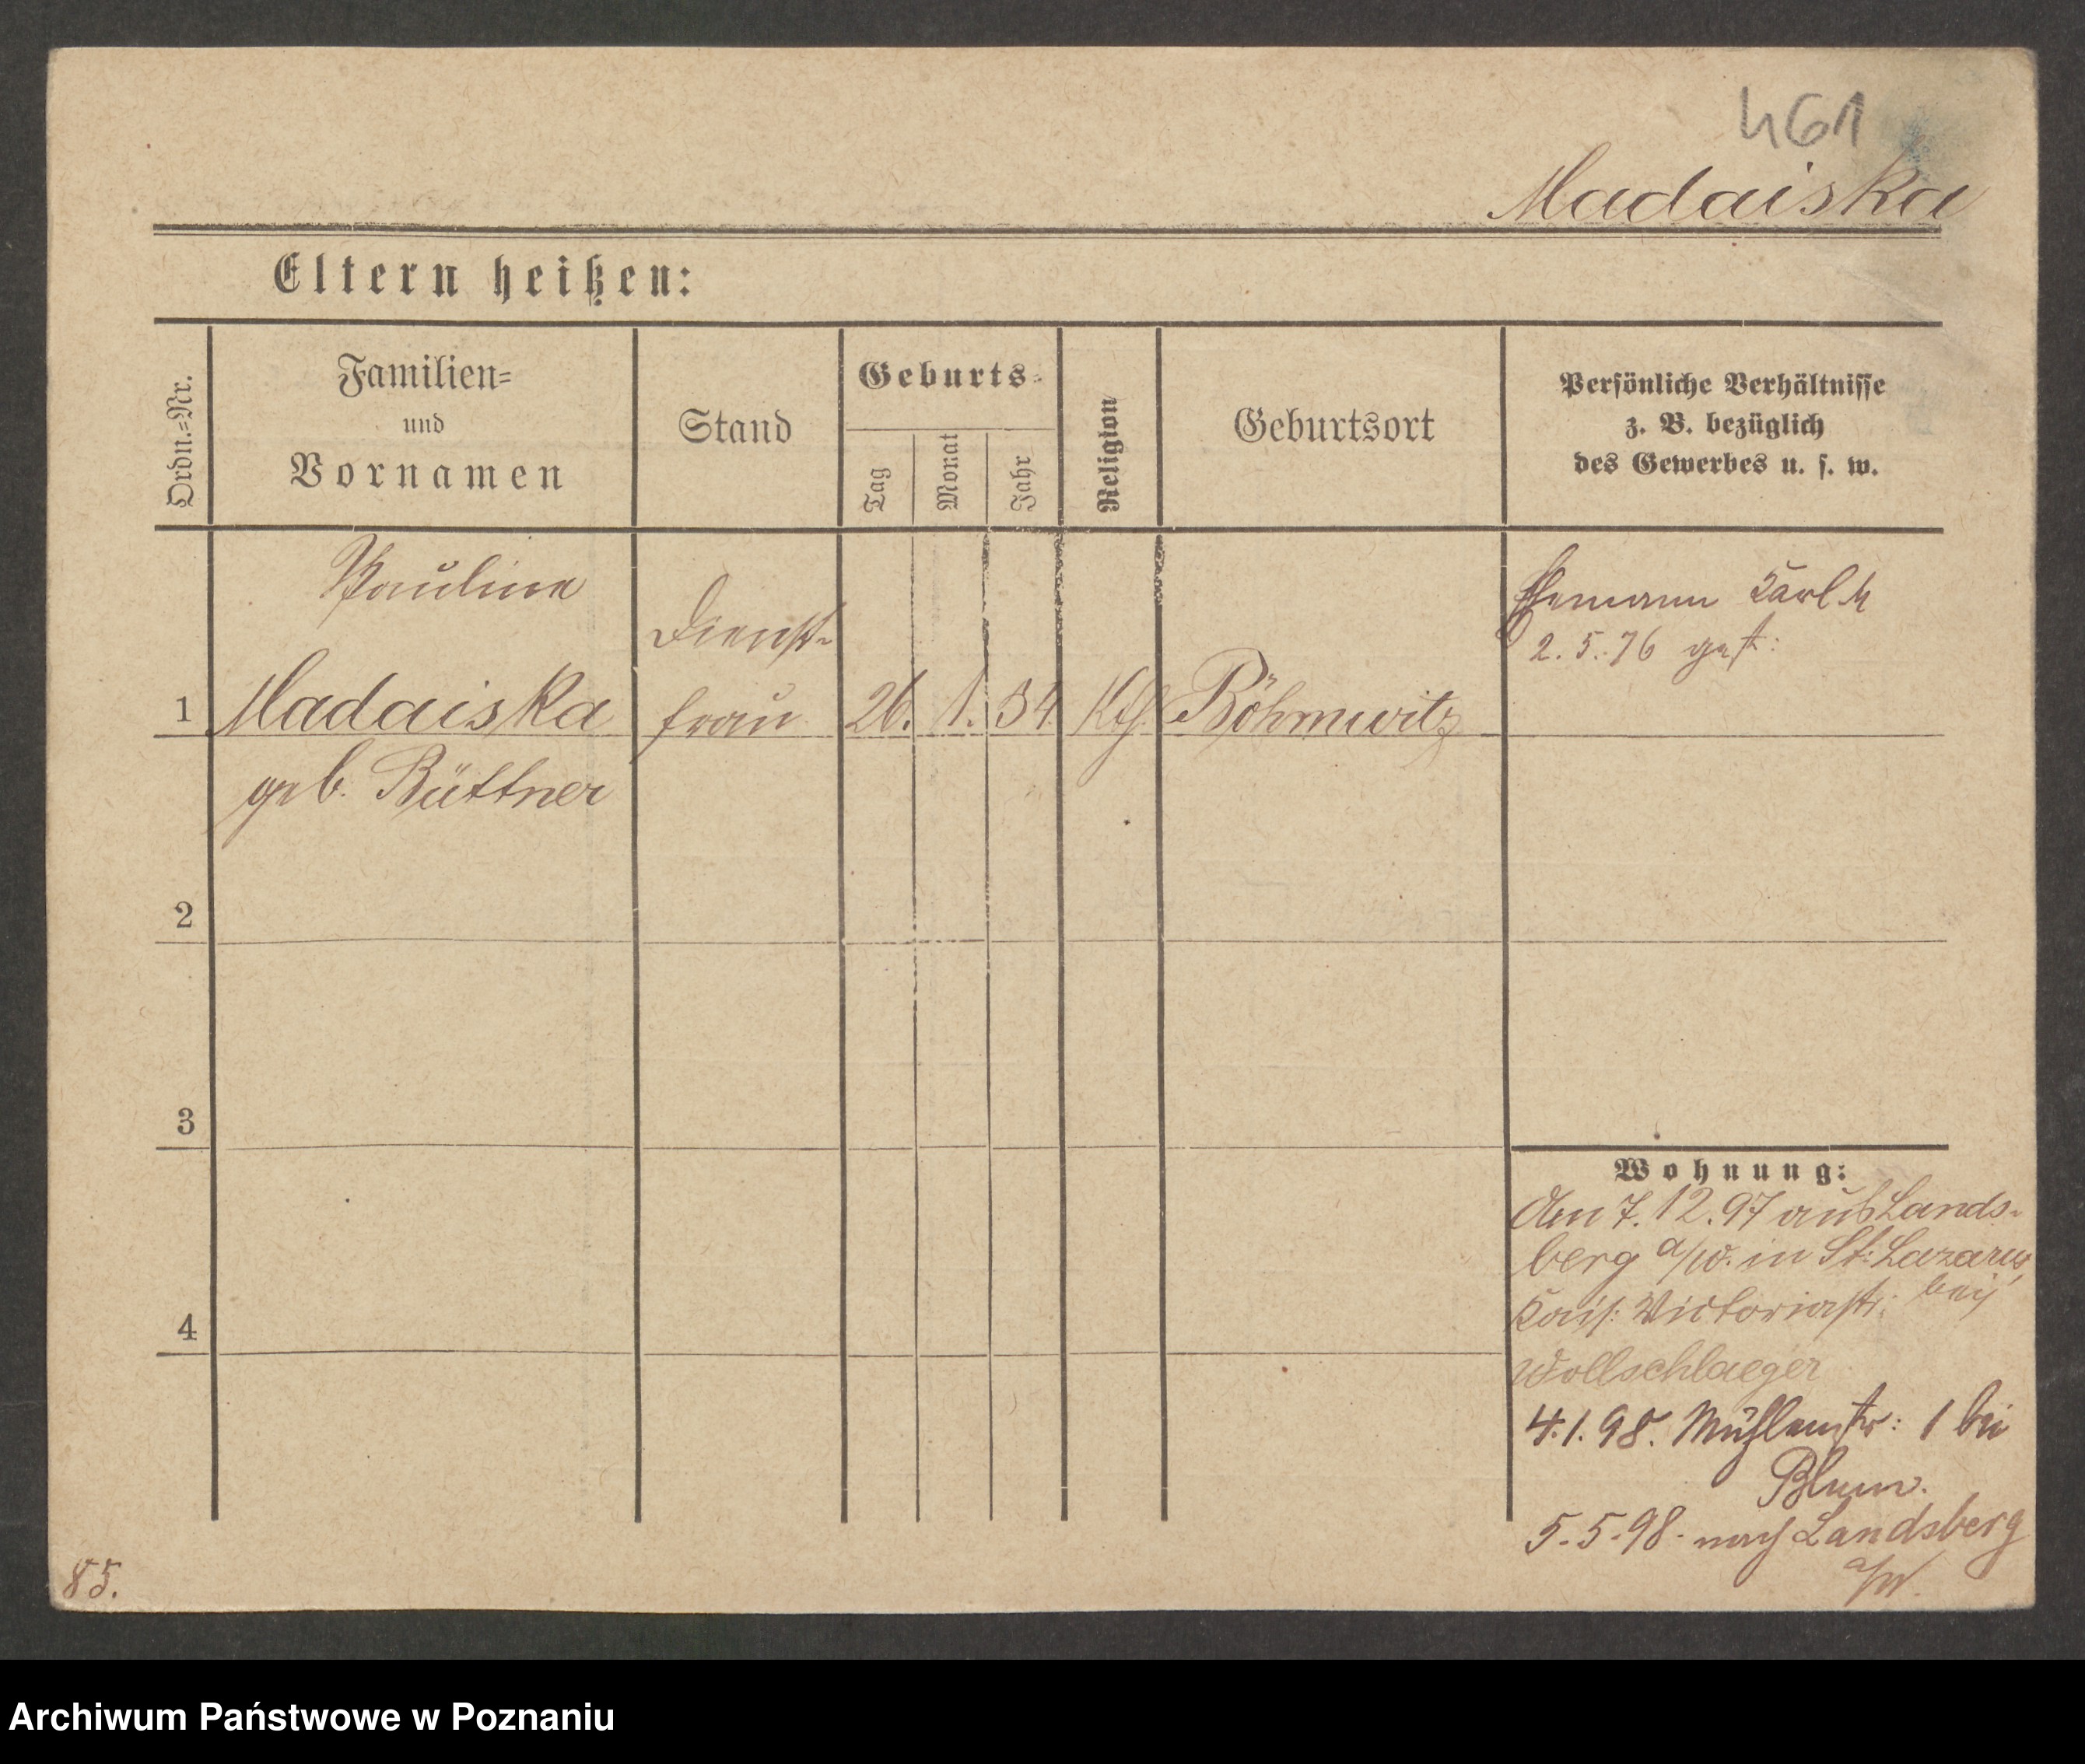 461
Madaiska
Eltern heißen:
Ordn.=Nr.
Familien=
und
Vornamen
Stand
Geburts=
Tag
Monat
Jahr
Religion
Geburtsort
Persönliche Verhältnisse
z. B. bezüglich
des Gewerbes u. s. w.
Pauline
Dienst-
Ehemann Karl M
2.5.76 gest:
1 Madaiska frau 26. 1. 34. Kth Böhmwitz
geb. Büttner
2
3
4
Wohnung:
Am 7.12.97 aus Lands-
berg a/W. in St: Lazarus,
Kais: Victoriastr: bei
Wollschlaeger
4.1.98. Mühlenstr: 1 bei
Blum.
5.5.98. nach Landsberg
a/W.
85.
Archiwum Państwowe w Poznaniu